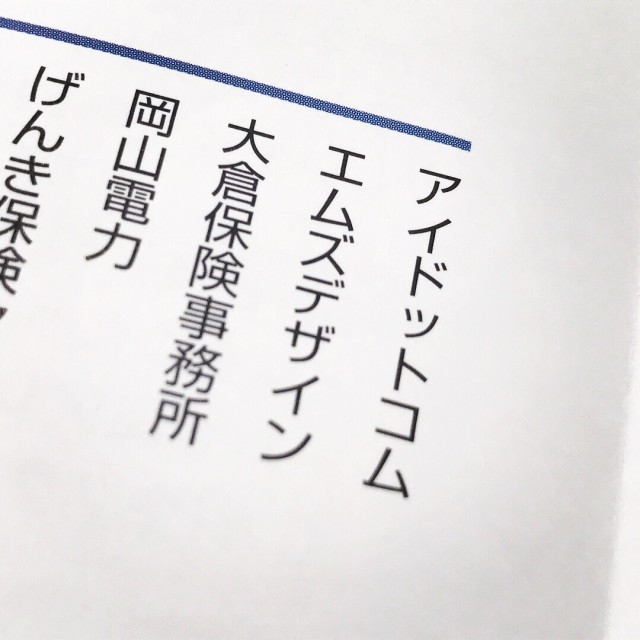 アイドットコム
エムズデザイン
大倉保険事務所
岡山電力
げんき保険